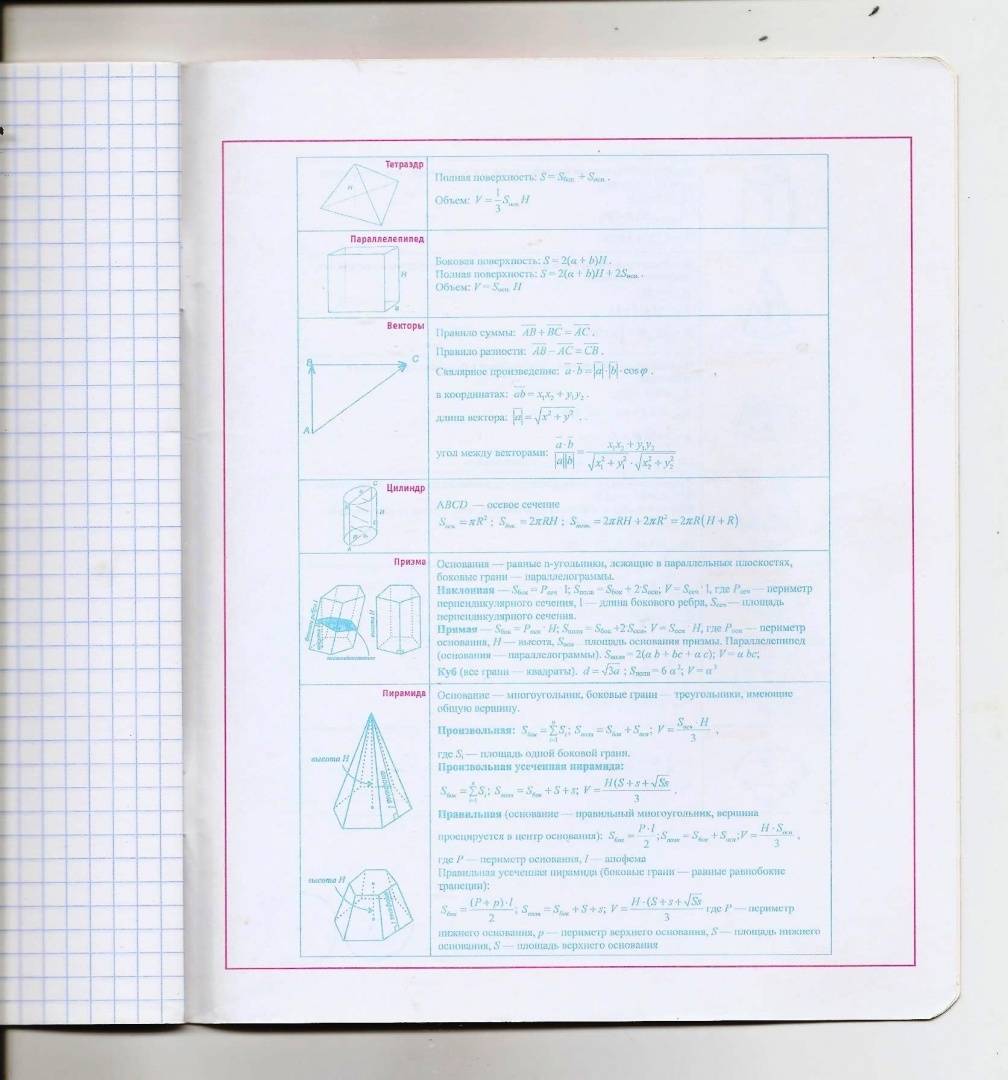 Тетраэдр
н
Полная поверхность: S = Sбок + Sосн .
Объем: V = 1/3 Sосн H
Параллелепипед
н
a
Боковая поверхность: S = 2(a + b)H .
Полная поверхность: S = 2(a + b)H + 2Sосн .
Объем: V = Sосн H
Векторы
B
C
A
Правило суммы: AB + BC = AC .
Правило разности: AB − AC = CB .
Скалярное произведение: a · b = |a| · |b| · cos φ .
в координатах: ab = x₁x₂ + y₁y₂ .
длина вектора: |a| = √(x² + y²) . .
угол между векторами: a · b / |a||b| = x₁x₂ + y₁y₂ / √(x₁² + y₁²) · √(x₂² + y₂²)
Цилиндр
ABCD — осевое сечение
Sосн = πR² ; Sбок = 2πRH ; Sполн = 2πRH + 2πR² = 2πR(H + R)
Призма
высота H
Основания — равные n-угольники, лежащие в параллельных плоскостях,
боковые грани — параллелограммы.
Наклонная — Sбок = Pсеч · l; Sполн = Sбок + 2·Sосн; V = Sсеч · l, где Pсеч — периметр
перпендикулярного сечения, l — длина бокового ребра, Sсеч — площадь
перпендикулярного сечения.
Прямая — Sбок = Pосн · H; Sполн = Sбок +2·Sосн, V = Sосн · H, где Pосн — периметр
основания, H — высота, Sосн площадь основания призмы. Параллелепипед
(основания — параллелограммы). Sполн = 2(a b + bc + a c); V = a bc;
Куб (все грани — квадраты). d = √3a ; Sполн = 6 a²; V = a³
Пирамида
высота H
апофема l
Основание — многоугольник, боковые грани — треугольники, имеющие
общую вершину.
Произвольная: Sбок = ∑Sᵢ; Sполн = Sбок + Sосн; V = Sосн · H / 3 ,
где Sᵢ — площадь одной боковой грани.
Произвольная усеченная пирамида:
Sбок = ∑Sᵢ; Sполн = Sбок + S + s; V = H(S + s + √Ss / 3 .
Правильная (основание — правильный многоугольник, вершина
проецируется в центр основания): Sбок = P · l / 2 ; Sполн = Sбок + Sосн ; V = H · Sосн / 3 ,
где P — периметр основания, l — апофема
высота H
Правильная усеченная пирамида (боковые грани — равные равнобокие
трапеции):
Sбок = (P + p) · l / 2 ; Sполн = Sбок + S + s; V = H · (S + s + √Ss / 3 где P — периметр
нижнего основания, p — периметр верхнего основания, S — площадь нижнего
основания, S — площадь верхнего основания